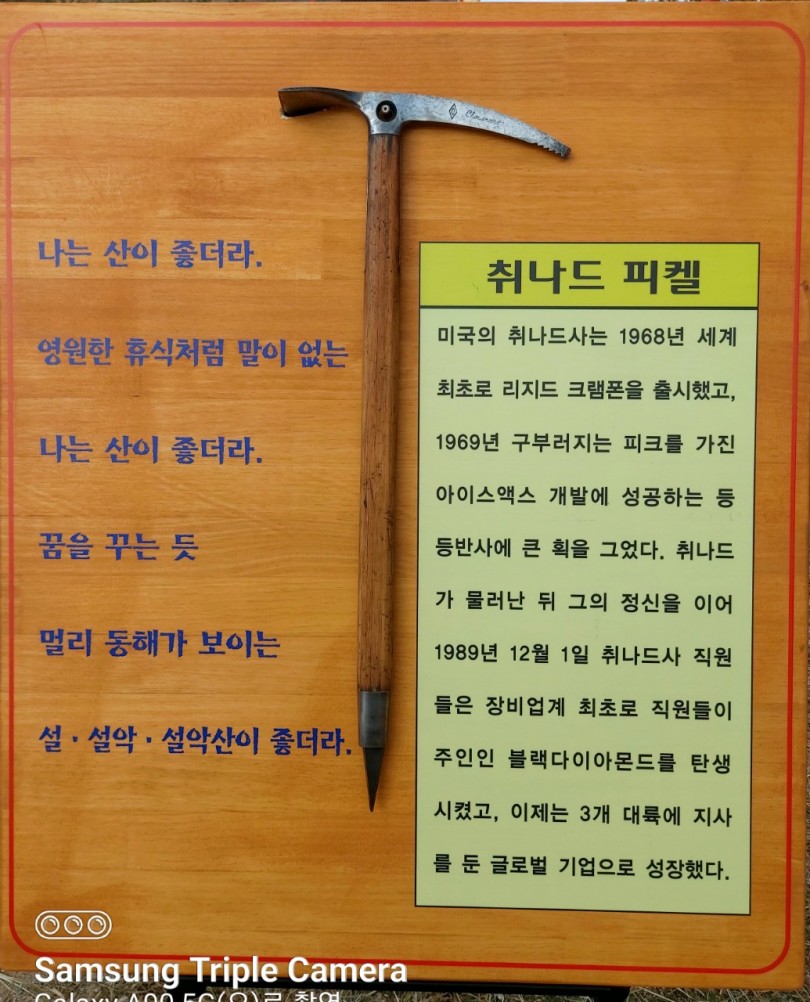 나는 산이 좋더라.
영원한 휴식처럼 말이 없는
나는 산이 좋더라.
꿈을 꾸는 듯
멀리 동해가 보이는
설·설악·설악산이 좋더라.
취나드 피켈
미국의 취나드사는 1968년 세계
최초로 리지드 크램폰을 출시했고,
1969년 구부러지는 피크를 가진
아이스액스 개발에 성공하는 등
등반사에 큰 획을 그었다. 취나드
가 물러난 뒤 그의 정신을 이어
1989년 12월 1일 취나드사 직원
들은 장비업계 최초로 직원들이
주인인 블랙다이아몬드를 탄생
시켰고, 이제는 3개 대륙에 지사
를 둔 글로벌 기업으로 성장했다.
Samsung Triple Camera
Galaxy A90 5G(으)로 촬영